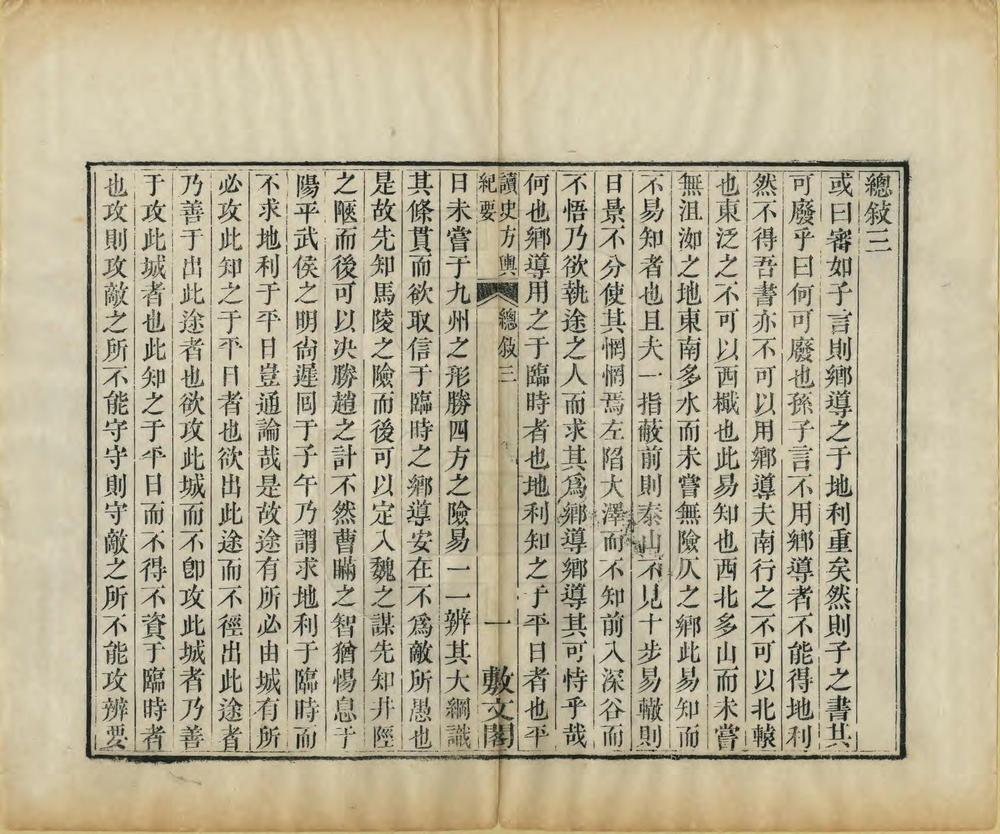 總敘三
或曰審如子言則鄉導之于地利重矣然則子之書其
可廢乎曰何可廢也孫子言不用鄉導者不能得地利
然不得吾書亦不可以用鄉導夫南行之不可以北轅
也東泛之不可以西檝也此易知也西北多山而未嘗
無沮洳之地東南多水而未嘗無險仄之鄉此易知而
不易知者也且夫一指蔽前則泰山不見十步易轍則
日景不分使其惘惘焉左陷大澤而不知前入深谷而
不悟乃欲執途之人而求其爲鄉導鄉導其可恃乎哉
何也鄉導用之于臨時者也地利知之于平日者也平
讀史方輿紀要 總敘三 一 敷文閣
日未嘗于九州之形勝四方之險易一一辨其大綱識
其條貫而欲取信于臨時之鄉導安在不爲敵所愚也
是故先知馬陵之險而後可以定入魏之謀先知井陘
之阨而後可以決勝趙之計不然曹瞞之智猶惕息于
陽平武侯之明尙遲囘于子午乃謂求地利于臨時而
不求地利于平日豈通論哉是故途有所必由城有所
必攻此知之于平日者也欲出此途而不徑出此途者
乃善于出此途者也欲攻此城而不卽攻此城者乃善
于攻此城者也此知之于平日而不得不資于臨時者
也攻則攻敵之所不能守守則守敵之所不能攻辨要